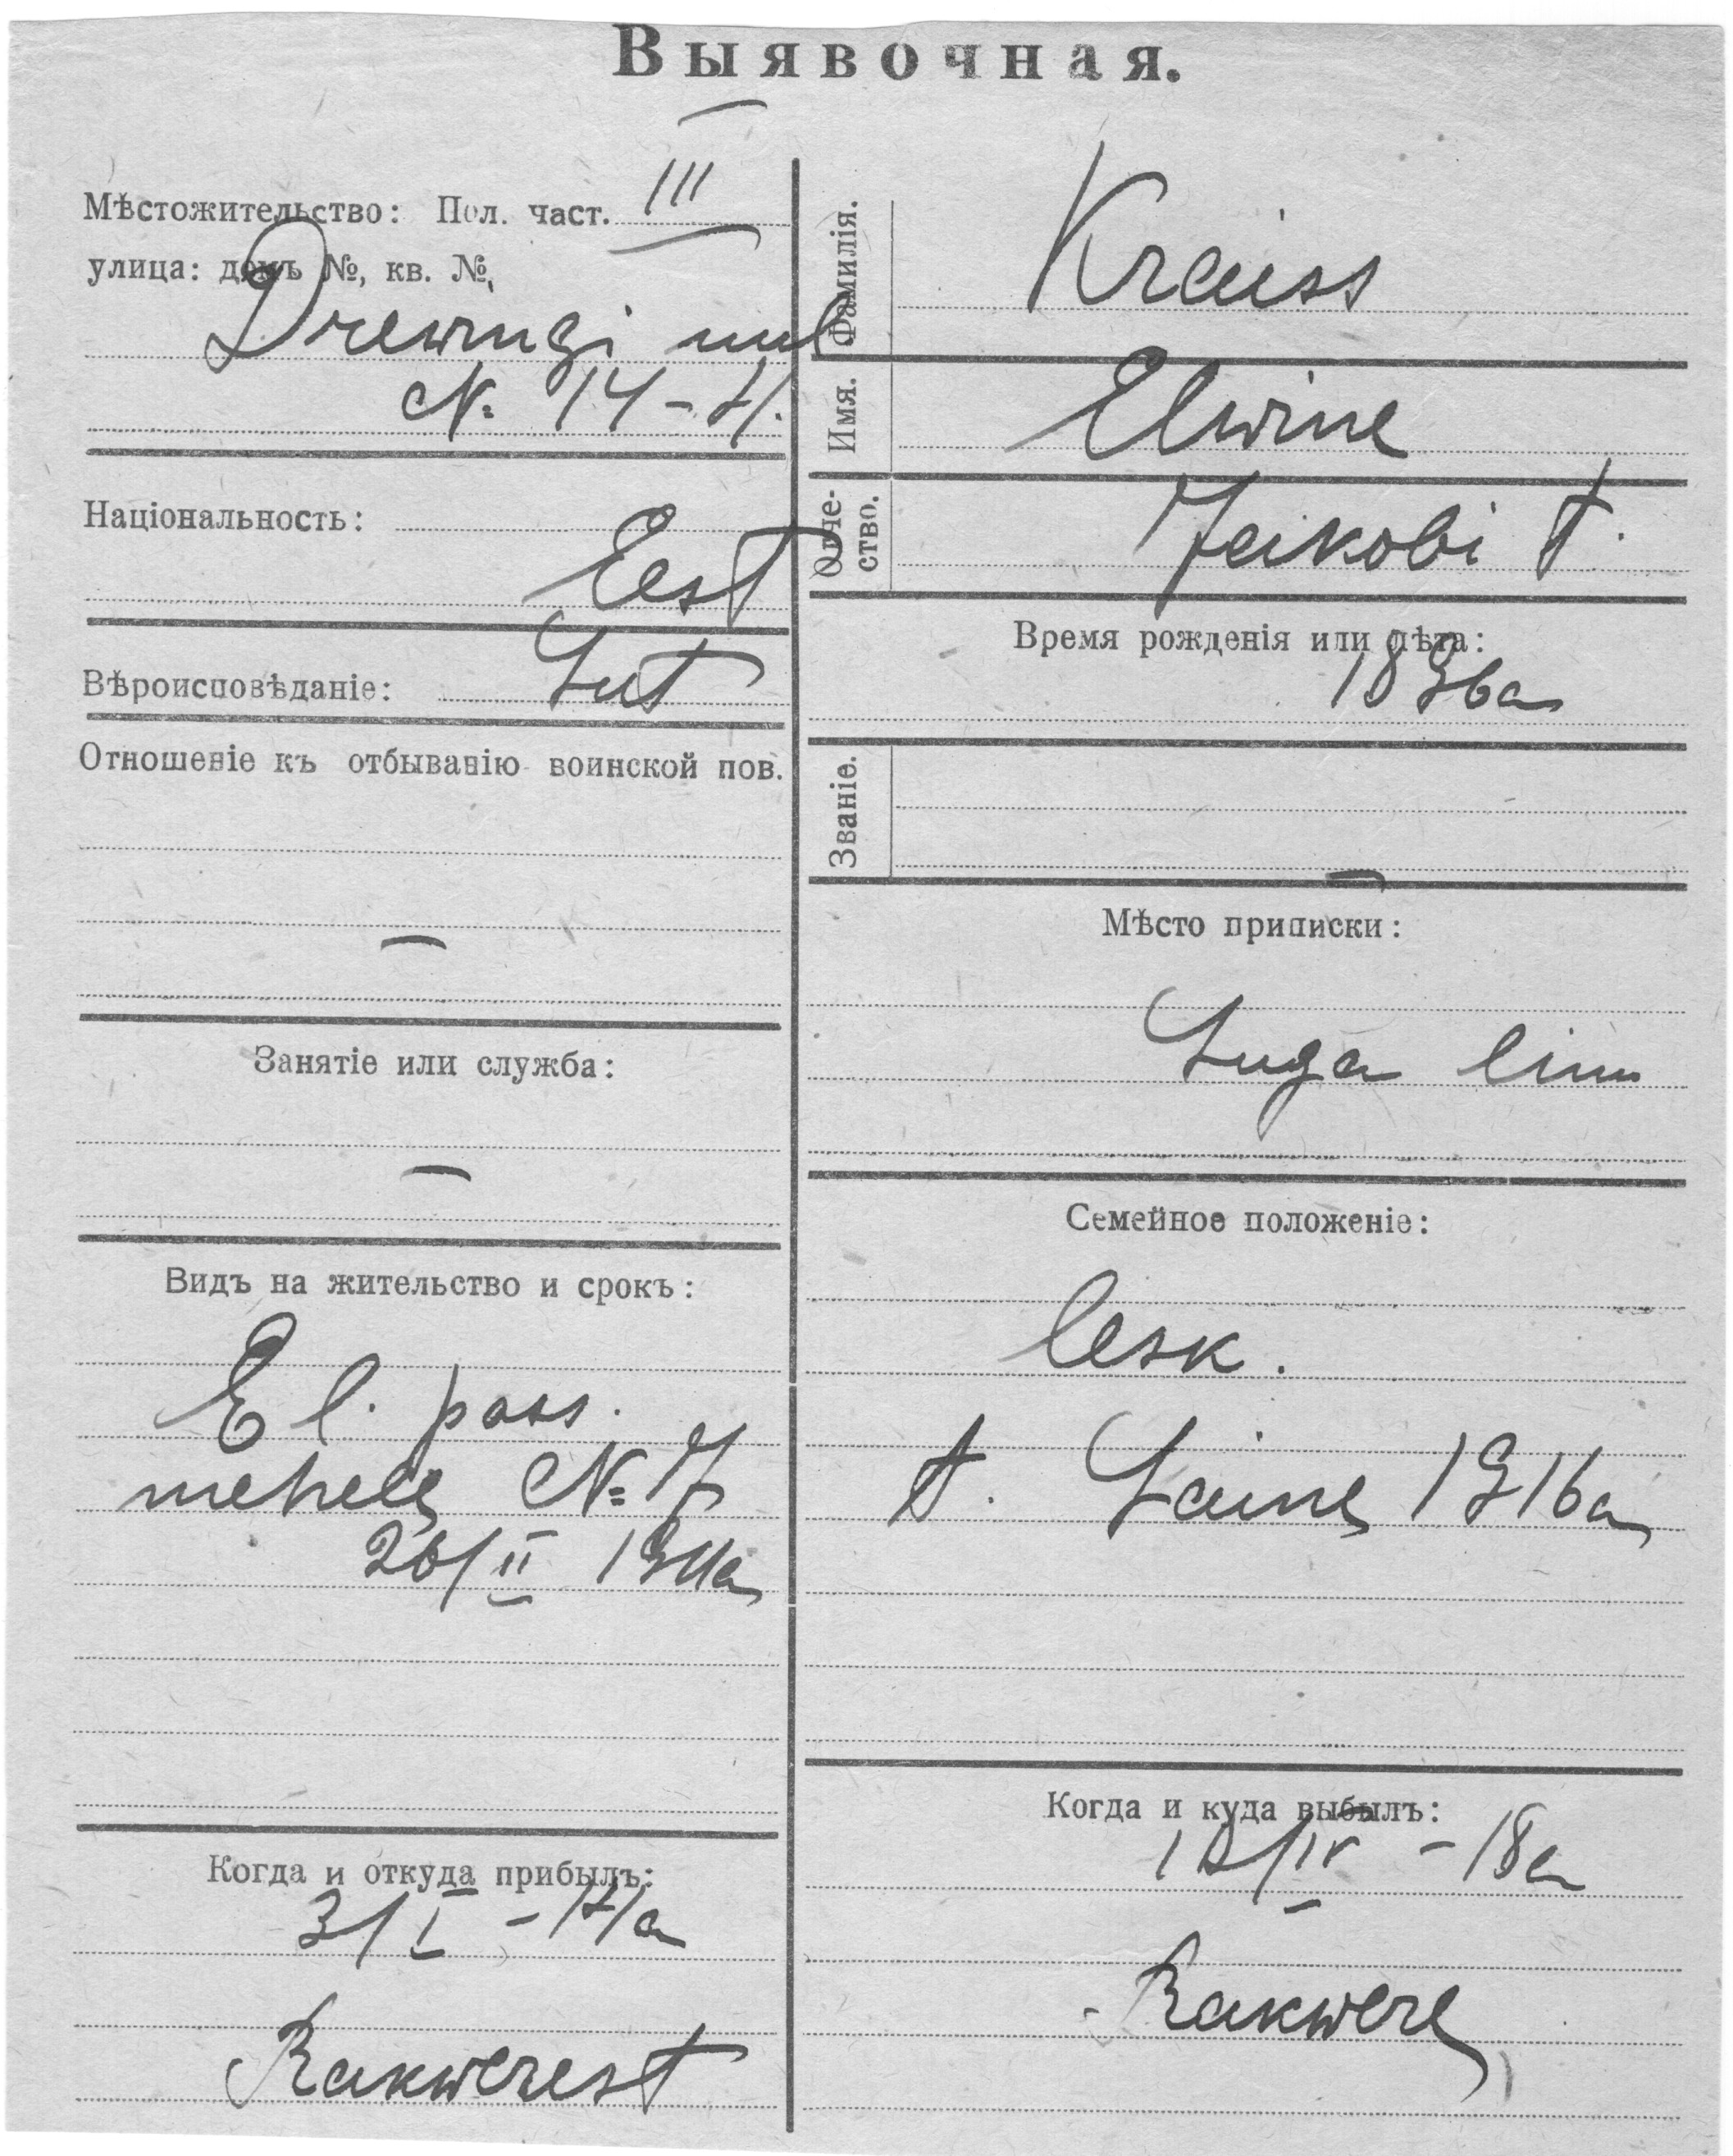 Выявочная.
Мѣстожительство: Пол. част. III
улица: домъ №, кв. №,
Drewingi uul
№ 14-4.
Національность:
Eest
Вѣроисповѣданіе: Lut
Отношеніе къ отбыванію воинской пов.
—
Занятіе или служба:
—
Видъ на жительство и срокъ:
E l. pass.
mehele № 17
26/II 1911a
Когда и откуда прибылъ:
3/I - 17/a
Rakwerest
Фамилія. Krauss
Имя. Elwine
Отчество. Jakobi t.
Время рожденія или лѣта:
1896a
Званіе.
—
Мѣсто приписки:
Luga linn
Семейное положеніе:
lesk.
t. Laine 1916a
Когда и куда выбылъ:
/IV - 18a
Rakwere